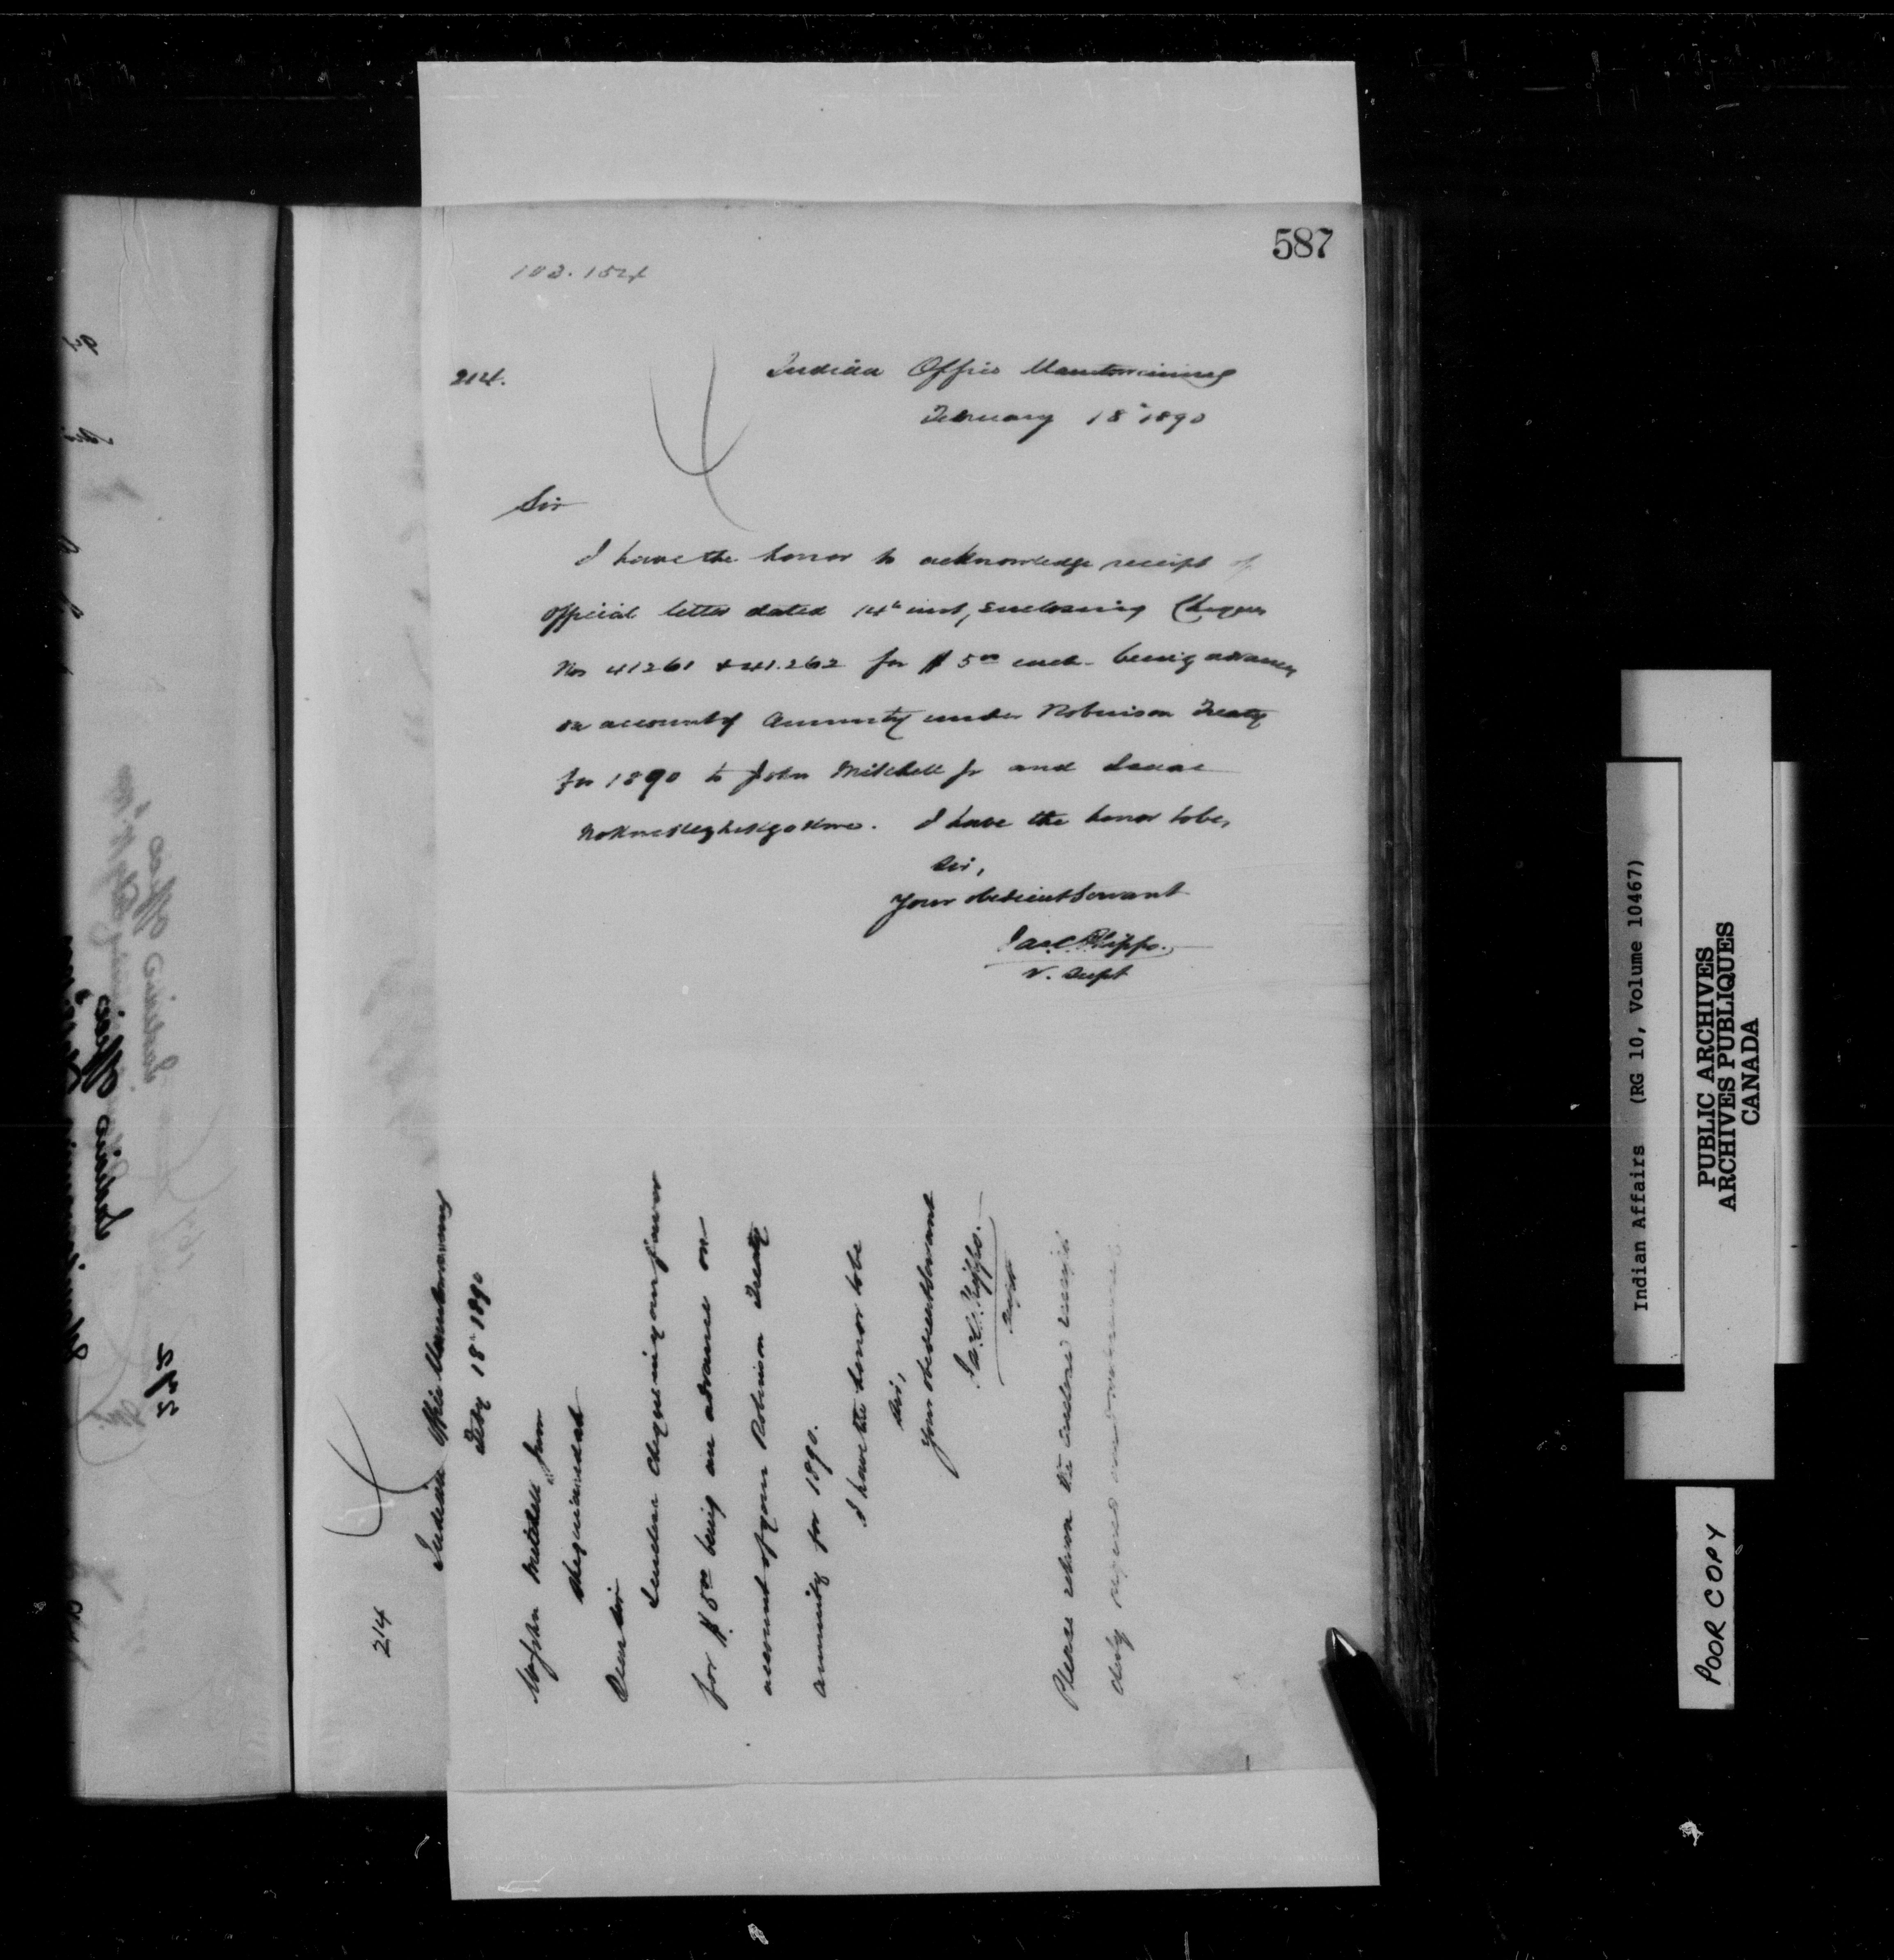 587
103.154
214.
Indian Office Manitowaning
February 18" 1890
Sir
I have the honor to acknowledge receipt of
official letter dated 14" inst, enclosing Cheques
Nos 41261 & 41.262 for $5 00 each being advances
on account of Annuity under Robinson Treaty
for 1890 to John Mitchell Jr and Isaac
I have the honor to be,
Sir,
Your obedient Servant
Jas. C. Phipps.
V. Supt
214
Indian Office Manitowaning
Feby 18" 1890
Mr John Mitchell Junr
Sheguiandah
Dear Sir
I enclose cheque in your favor
for $5 00 being an advance on
account of your Robinson Treaty
annuity for 1890.
I have the honor to be
Sir,
Your obedient Servant
Jas. C. Phipps.
Supt
Please return the enclosed receipt
duly signed and
Indian Office
Indian Affairs (RG 10, Volume 10467)
PUBLIC ARCHIVES
ARCHIVES PUBLIQUES
CANADA
POOR COPY